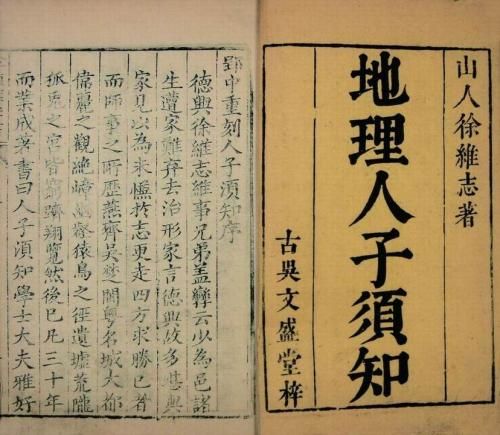 山人徐維志著
地理人子須知
古吳文盛堂梓
郢中重刻人子須知序
德興徐維志維事兄弟盖孿云少為邑諸
生遭家難弃去治形家言德興故多堪輿
家見以為未愜扵志更走四方求勝已者
而師事之所歷燕齊吳楚閩粤名城大都
偉麗之觀絶嶂壑猿鳥之徑遺墟荒隴
狐兎之宮皆窮翔覽然後已凡三十年
而業成著書曰人子須知學士大夫雅好